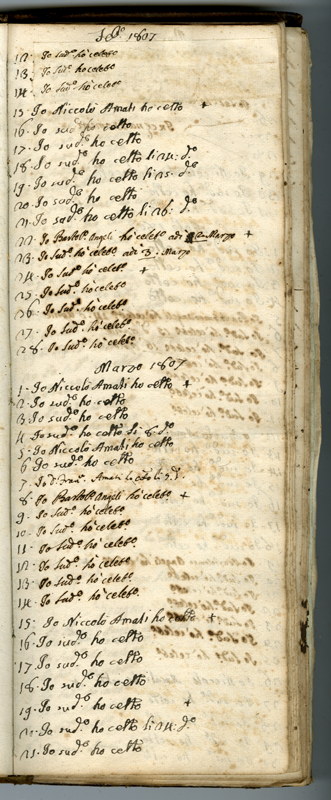 1807
12. Io Sud.º hò celeb.º
13. Io Sud.º hò celeb.º
14. Io Sud.º hò celeb.º
15. Io Niccolò Amati ho celtō +
16. Io sud.º ho celtō
17. Io sud.º ho celtō
18. Io sud.º ho celtō li 24: d.º
19. Io sud.º ho celtō li 25: d.º
20. Io sud.º ho celtō
21. Io sud.º ho celtō li 26: d.º
22. Io Bartol.º Angeli hò celeb.º adi 2. Marzo +
23. Io Sud.º hò celeb.º adi 3. Marzo
24. Io Sud.º hò celeb.º +
25. Io Sud.º hò celeb.º
26. Io Sud.º hò celeb.º
27. Io Sud.º hò celeb.º
28. Io Sud.º hò celeb.º
Marzo 1807
1. Io Niccolò Amati ho celtō +
2. Io sud.º ho celtō
3. Io sud.º ho celtō
4. Io sud.º ho celtō li 8. d.º
5. Io Niccolò Amati ho celtō
6. Io sud.º ho celtō
7. Io Amati
8. Io Bartol.º Angeli hò celeb.º +
9. Io Sud.º hò celeb.º
10. Io Sud.º hò celeb.º
11. Io Sud.º hò celeb.º
12. Io Sud.º hò celeb.º
13. Io Sud.º hò celeb.º
14. Io Sud.º hò celeb.º
15. Io Niccolò Amati ho celtō +
16. Io sud.º ho celtō
17. Io sud.º ho celtō
18. Io sud.º ho celtō
19. Io sud.º ho celtō +
20. Io sud.º ho celtō li 24: d.º
21. Io sud.º ho celtō